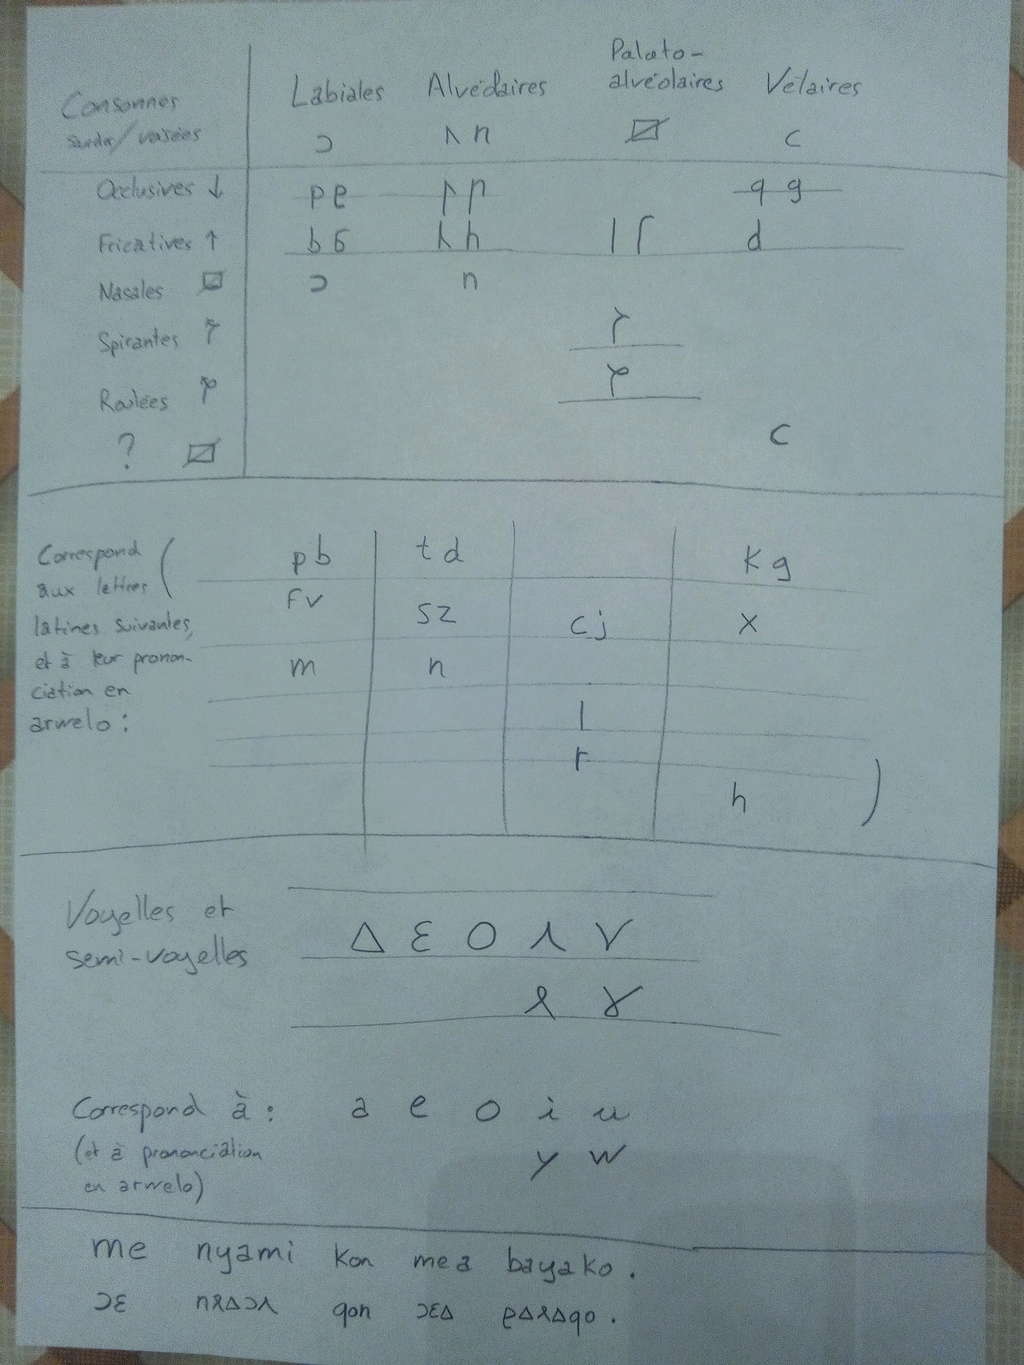 Consonnes Labiales Alvéolaires Palato-alvéolaires Vélaires
sourdes/voisées ɔ ʌ n c
Occlusives ↓ p e p q g
Fricatives ↑ b б h d
Nasales ɔ n
Spirantes
Roulées
? c
Correspond aux lettres latines suivantes, et à leur prononciation en arwelo : (
p b t d k g
f v s z c j x
m n
l
r
h )
Voyelles et semi-voyelles
Δ Ɛ O ʌ V
ɤ
Correspond à : a e o i u
(et à prononciation en arwelo) y w
me nyami kon mea bayako.
ɔɛ nƨΔɔʌ qon ɔɛΔ ҽΔƨΔqo.